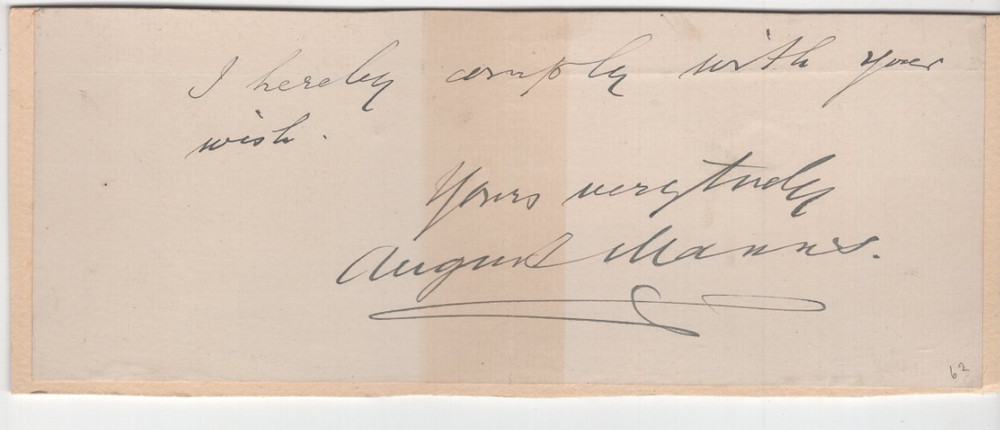 I hereby comply with your
wish.
Yours very truly
August Manns.
62